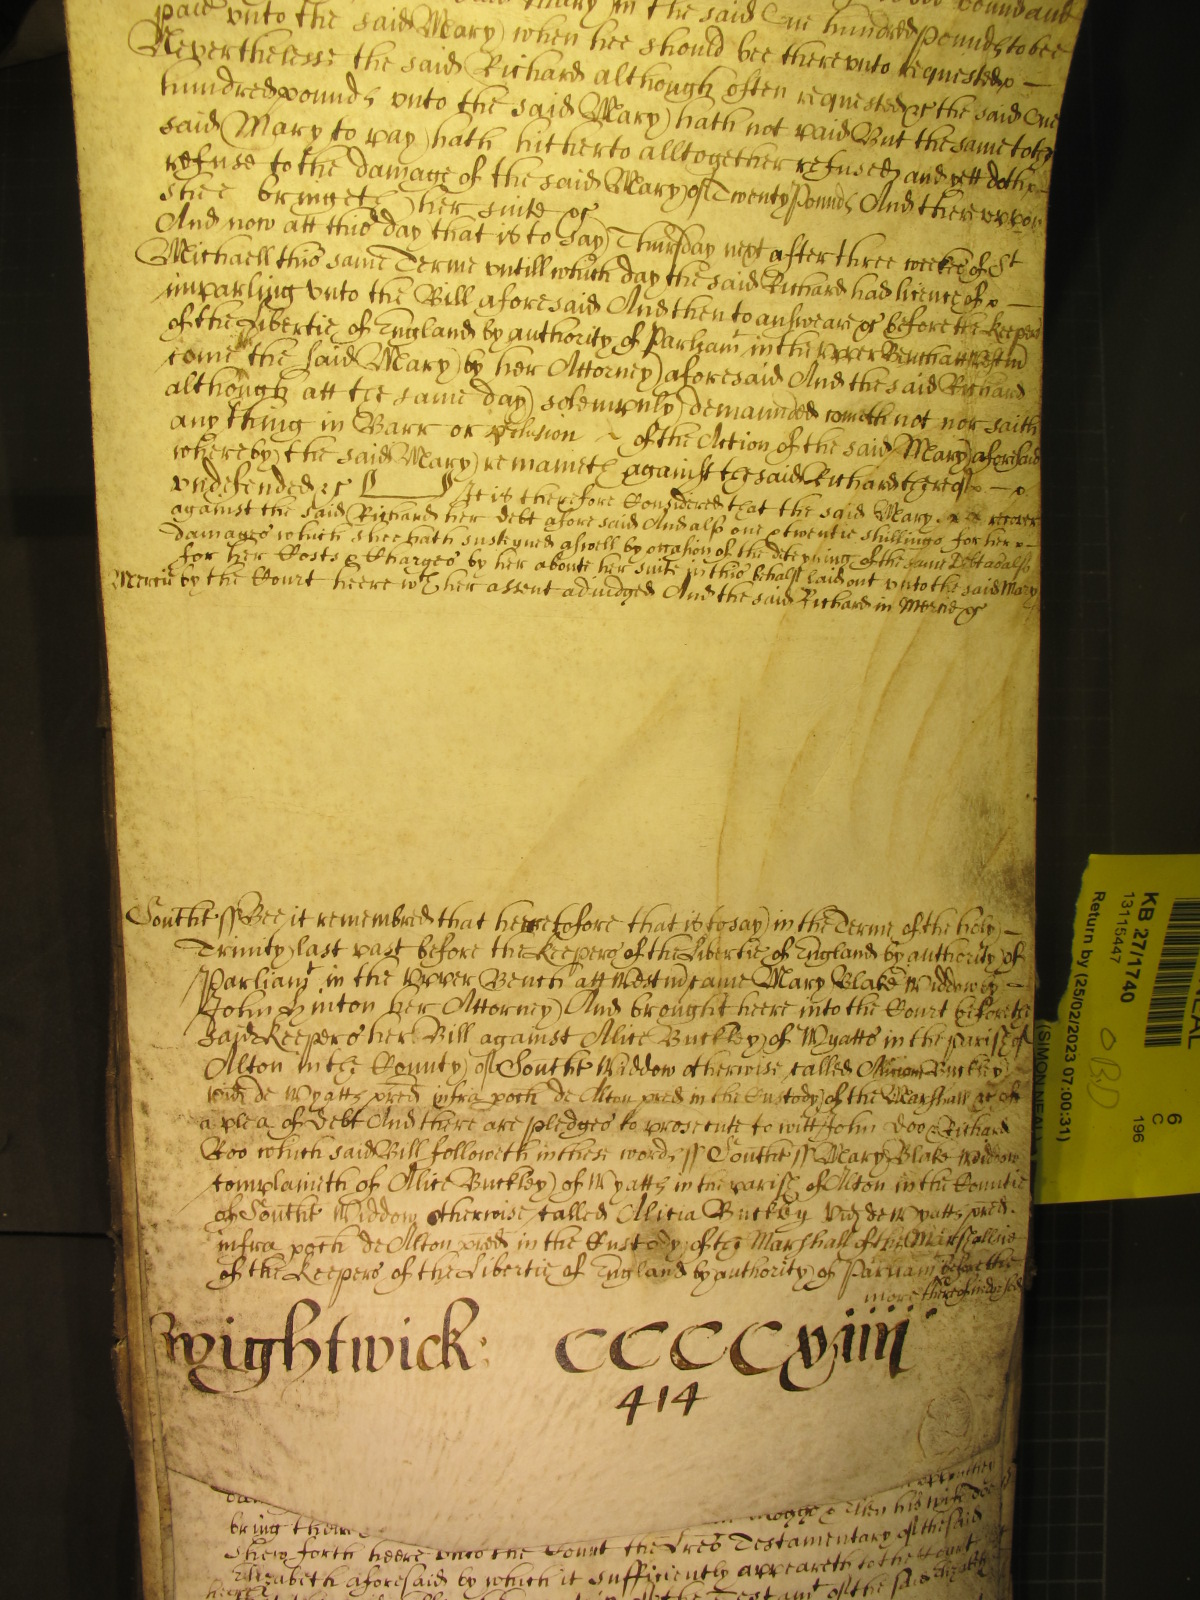 paid unto the said Mary in the said One hundred pounds to bee
paid unto the said Mary when hee should bee thereunto requested
Neverthelesse the said Richard although often requested &c the said One
hundred pounds unto the said Mary hath not paid But the same to the
said Mary to pay hath hitherto alltogether refused and yett doth
refuse to the damage of the said Mary of Twenty Pounds And thereuppon
shee bringeth her suite &c
And now att this day that is to say Thursday next after three weekes of St
Michaell this same Terme untill which day the said Richard had licence of
imparling unto the Bill aforesaid And then to answear &c before the Keepers
of the Libertie of England by authority of Parliamt in the Upper Bench att Westm
come the said Mary by her Attorney aforesaid And the said Richard
although att the same day solempnly demaunded cometh not nor saith
any thing in Barr or of the Action of the said Mary aforesaid
whereby the said Mary remaineth against the said Richard thereof
undefended &c It is therefore Considered that the said Mary recover
against the said Richard her debt aforesaid And also one & twentie shillings for her
damages which shee hath susteyned aswell by occasion of the deteyning of the same Debt as
for her Costs & Charges by her aboute her suite in this behalf laid out unto the said Mary
Mercie by the Court heere wth her assent adiudged And the said Richard in Mercie &c
Southt ss Bee it remembred that heeretofore that is to say in the Terme of the holy
Trinity last past before the Keepers of the Libertie of England by authority of
Parliamt in the Upper Bench att Westm came Mary Blake Widdow by
John Linton her Attorney And brought heere into the Court before the
said Keepers her Bill against Alice Buckley of Wyatts in the parish of
Alton in the County of Southt Widdow otherwise called Buckley
vid de Wyatts pred infra poch de Alton pred in the Custody of the Marshall &c of
a plea of Debt And there are pledges to prosecute to witt John Doo & Richard
Roo which said Bill followeth in these words ss Southt ss Mary Blake Widdow
complaineth of Alice Buckley of Wyatts in the parish of Alton in the Countie
of Southt Widdow otherwise called Alicia Buckley vid de Wyatts pred
infra poch de Alton pred in the Custody of the Marshall of the Marshallsie
of the Keepers of the Libertie of England by authority of Parliamt before the
more thereof indorsed
Wightwick: CCCCxiiii
414
bring there
Shew forth heere unto the Court the Lres Testamentary of the said
Elizabeth aforesaid by which it sufficiently appeareth to the Court
heere of the Testamt of the said Elizabeth
KB 27/1740
13115447
Return by (25/02/2023 07:00:31)
(SIMON NEAL)
6
C
196